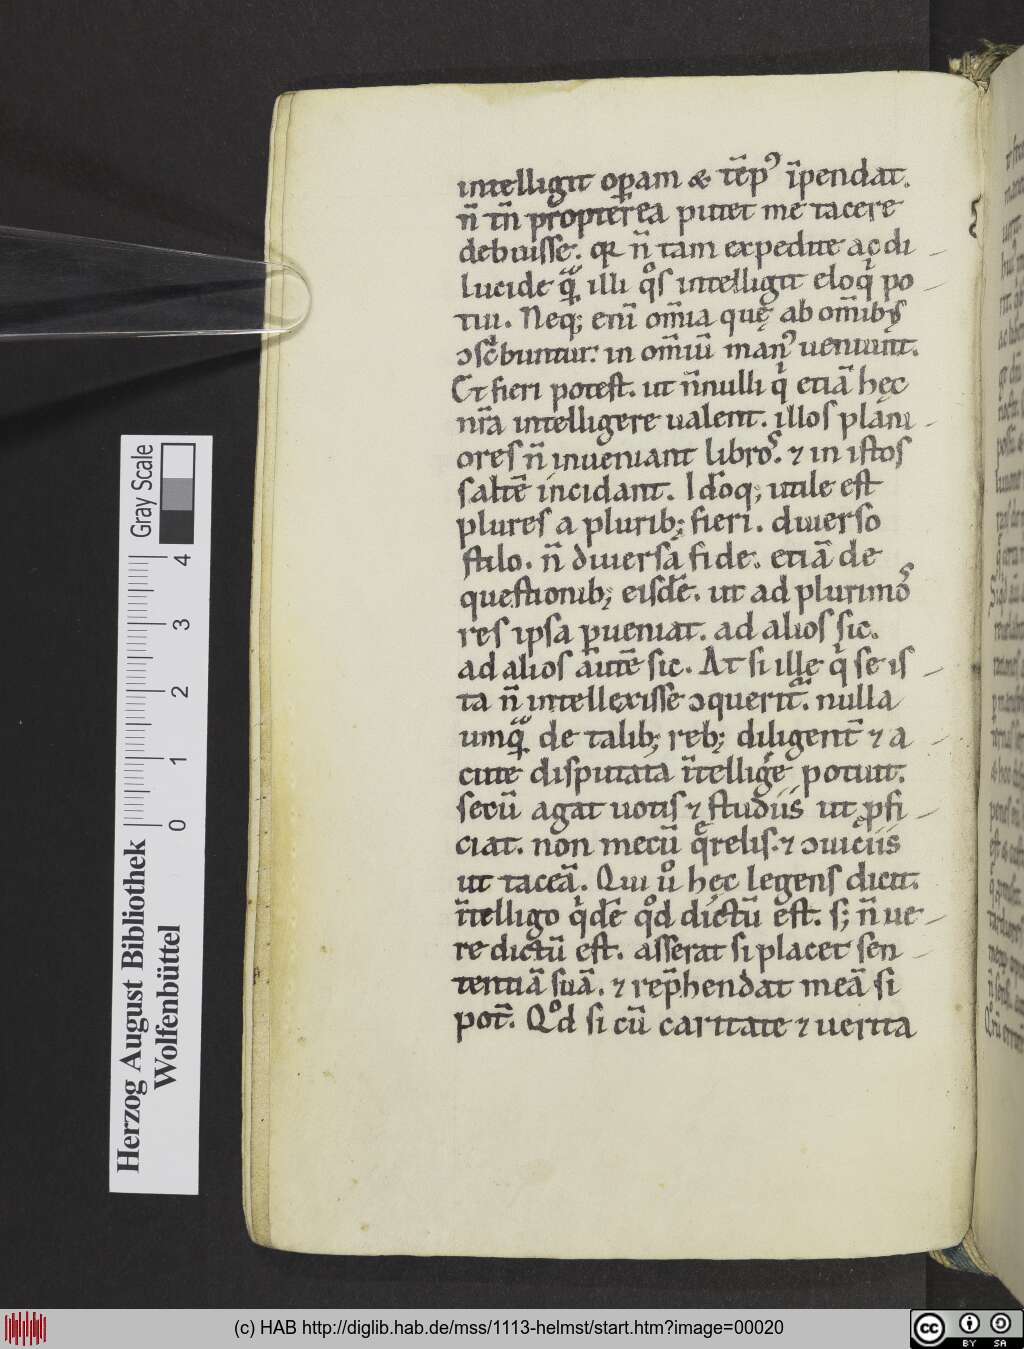 intelligit opam & tēp᾽ īpendat.
n̄ tn̄ propterea putet me tacere
debuisse. qꝛ n̄ tam expedite ac di
lucide qͣꝫ illi qͦs intelligit eloqͥ po
tui. Neqꝫ enī om̄ia quę ab om̄ibꝫ
ↄscͥbuntur: in om̄iū man᾽ ueniunt.
Et fieri potest. ut n̄nulli qͥ etiā hęc
nr̄a intelligere ualent. illos plani
ores n̄ inueniant libroˢ. ⁊ in istos
saltē incidant. Idōqꝫ utile est
plures a pluribꝫ fieri. diuerso
stilo. n̄ diuersa fide. etiā de
questionibꝫ eisdē. ut ad plurimoˢ
res ipsa ꝑueniat. ad alios sic.
ad alios autē sic. At si ille qͥ se is
ta n̄ intellexisse ↄqueritᷓ. nulla
umqͣꝫ de talibꝫ rebꝫ diligent̄ ⁊ a
cute disputata ītelligere potuit.
secū agat uotis ⁊ studiis ut ꝓfi
ciat. non mecū qͤrelis. ⁊ ↄuiciis
ut taceā. Qui uͦ hęc legens dicit.
ītelligo qͥdē qͦd dictū est. sꝫ n̄ ue
re dictū est. asserat si placet sen
tentiā suā. ⁊ rep̄hendat meā si
pot̄. Qͦd si cū caritate ⁊ uerita
Gray Scale
4
3
2
1
0
Herzog August Bibliothek
Wolfenbüttel
(c) HAB http://diglib.hab.de/mss/1113-helmst/start.htm?image=00020
cc
BY SA